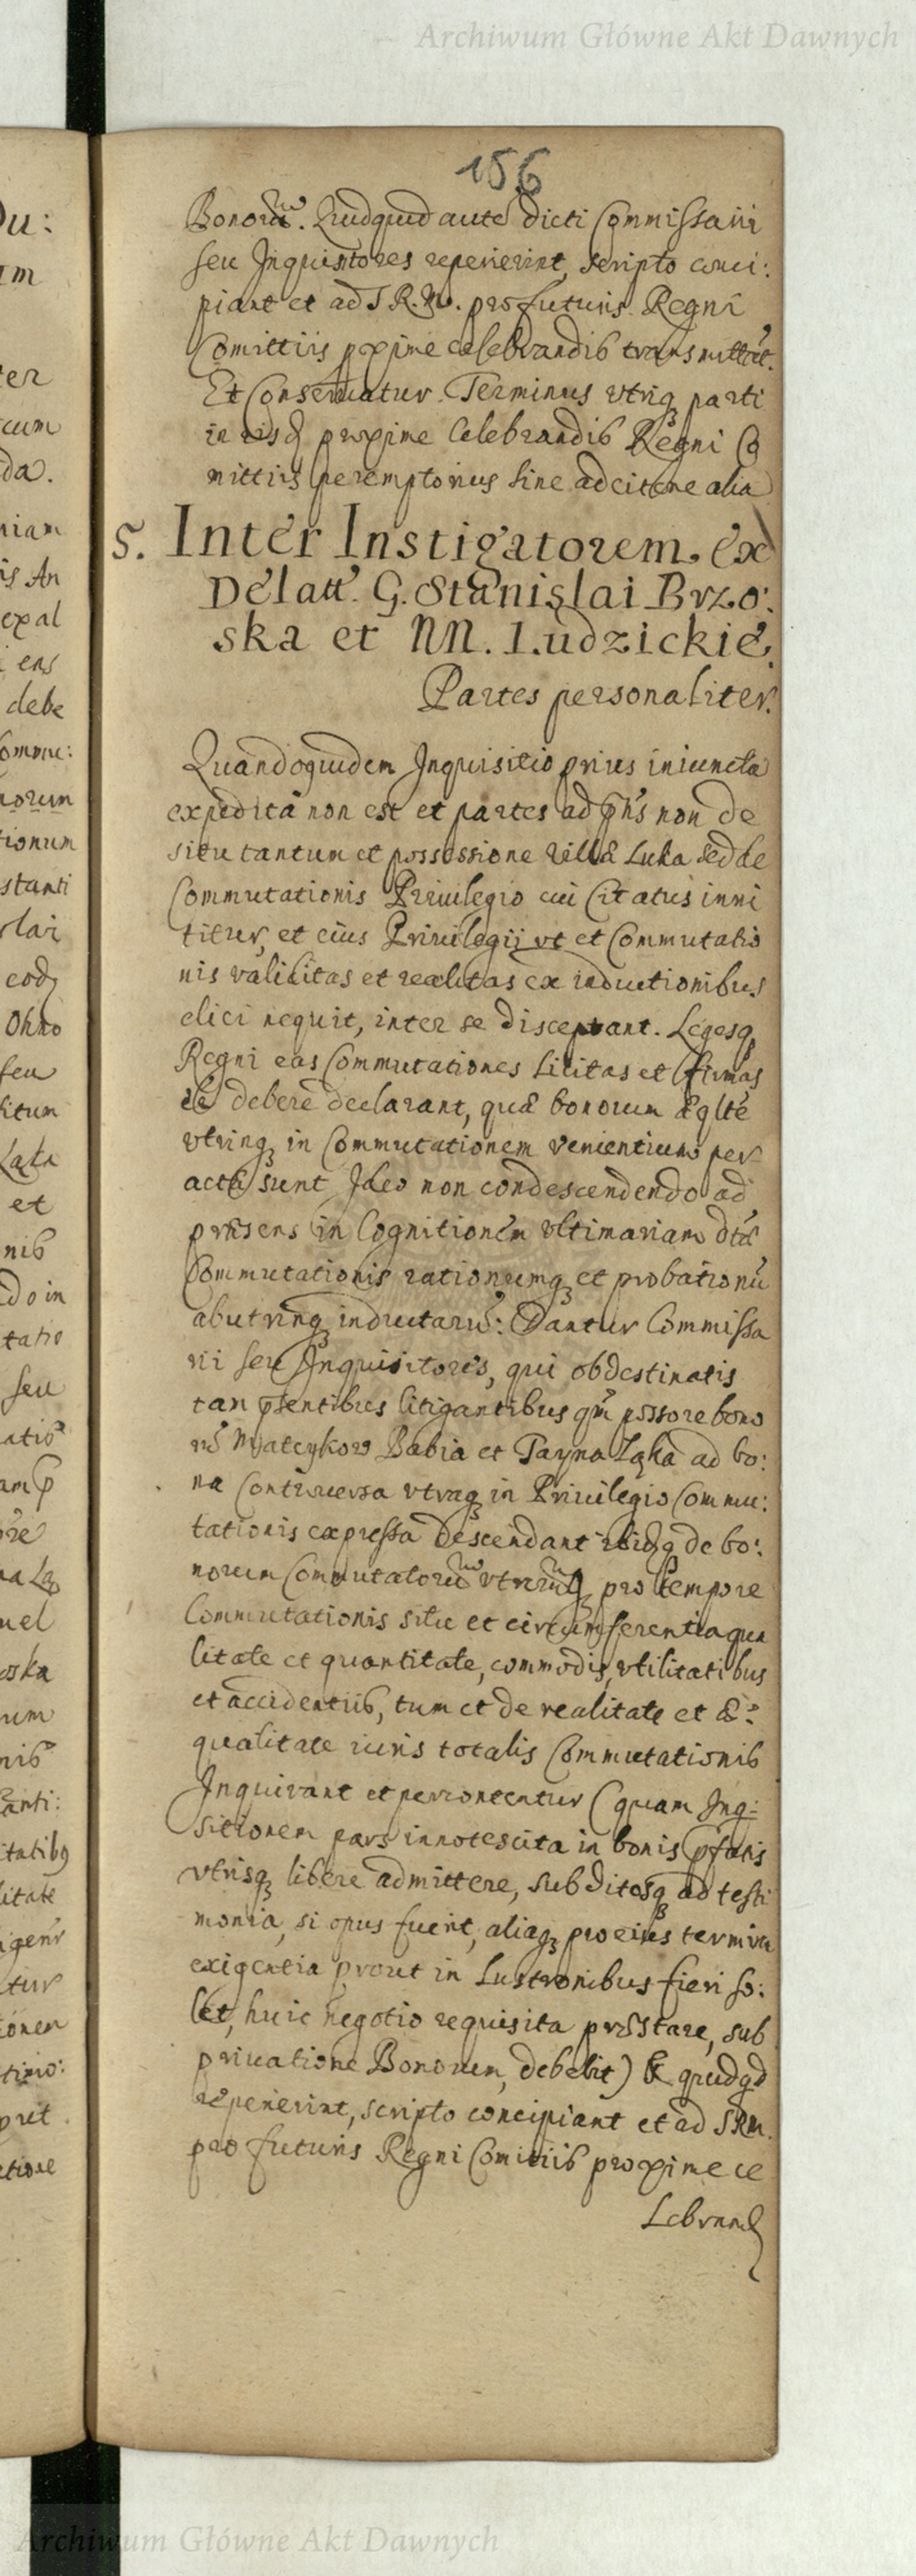 Archiwum Główne Akt Dawnych
156
Bonorũ. Quidquid autẽ dicti Commissarii
seu Inquisitores repererint, scripto conci:
piant et ad S R. M. pro futuris Regni
Comitiis pxime celebrandis transmittãt.
Et Conservatur Terminus vtriq parti
in iisd proxime Celebrandis Regni Co
mitiis peremptorius sine adcitõne alia
5. Inter Instigatorem ex
Delatt. G. Stanislai Brzo:
ska et NN. Ludzickie.
Partes personaliter.
Quandoquidem Inquisitio prius iniuncta
expedita non est et partes ad phs non de
situ tantum et possessione villæ Luka sed de
Commutationis Priuilegio cui Citatus inni
titur, et eius Priuilegii vt et Commutatio
nis validitas et realitas ex inductionibus
elici nequit, inter se disceptant. Legesq
Regni eas Commutationes licitas et firmas
debere declarant, quæ bonorum æqlte
vtrinq in Commutationem venientium per
actæ sunt Ideo non condescendendo ad
præsens in Cognitionem vltimariam dtæ
Commutationis rationumq et probationũ
abutrinq inductarũ: Dantur Commissa
rii seu Inquisitores, qui obdestinatis
tam pfentibus litigantibus qm possore bono
rũ Mateykow Babia et Tayna Ląka ad bo:
na Controuersa vtraq in Priuilegio Commu:
tationis expressa descendant ibidq de bo:
norum Commutatorũ vtrorũq pro tempore
Commutationis situ et circumferentia qua
litate et quantitate, commodis, vtilitatibus
et accidentiis, tum et de realitate et æ:
qualitate iuris totalis Commutationis
Inquirant et percontentur (quam Inq:
sitionem pars innotescita in bonis pfatis
vtrisq libere admittere, subditosq ad testi
monia, si opus fuerit, aliaq pro eius termini
exigentia prout in Lustronibus fieri so:
let, huic negotio requisita præstare, sub
priuatione Bonorum, debebit) & quidqd
repererint, scripto concipiant et ad SRM.
pro futuris Regni Comitiis proxime ce
Lebrand
Archiwum Główne Akt Dawnych